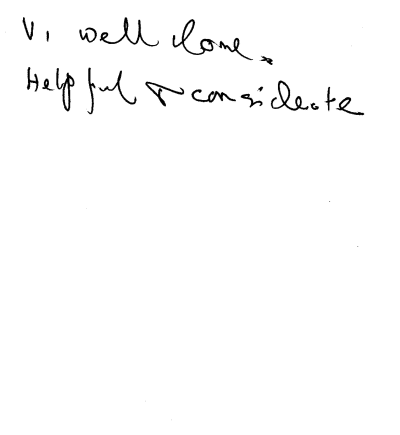 V. well done.
Helpful & considerate